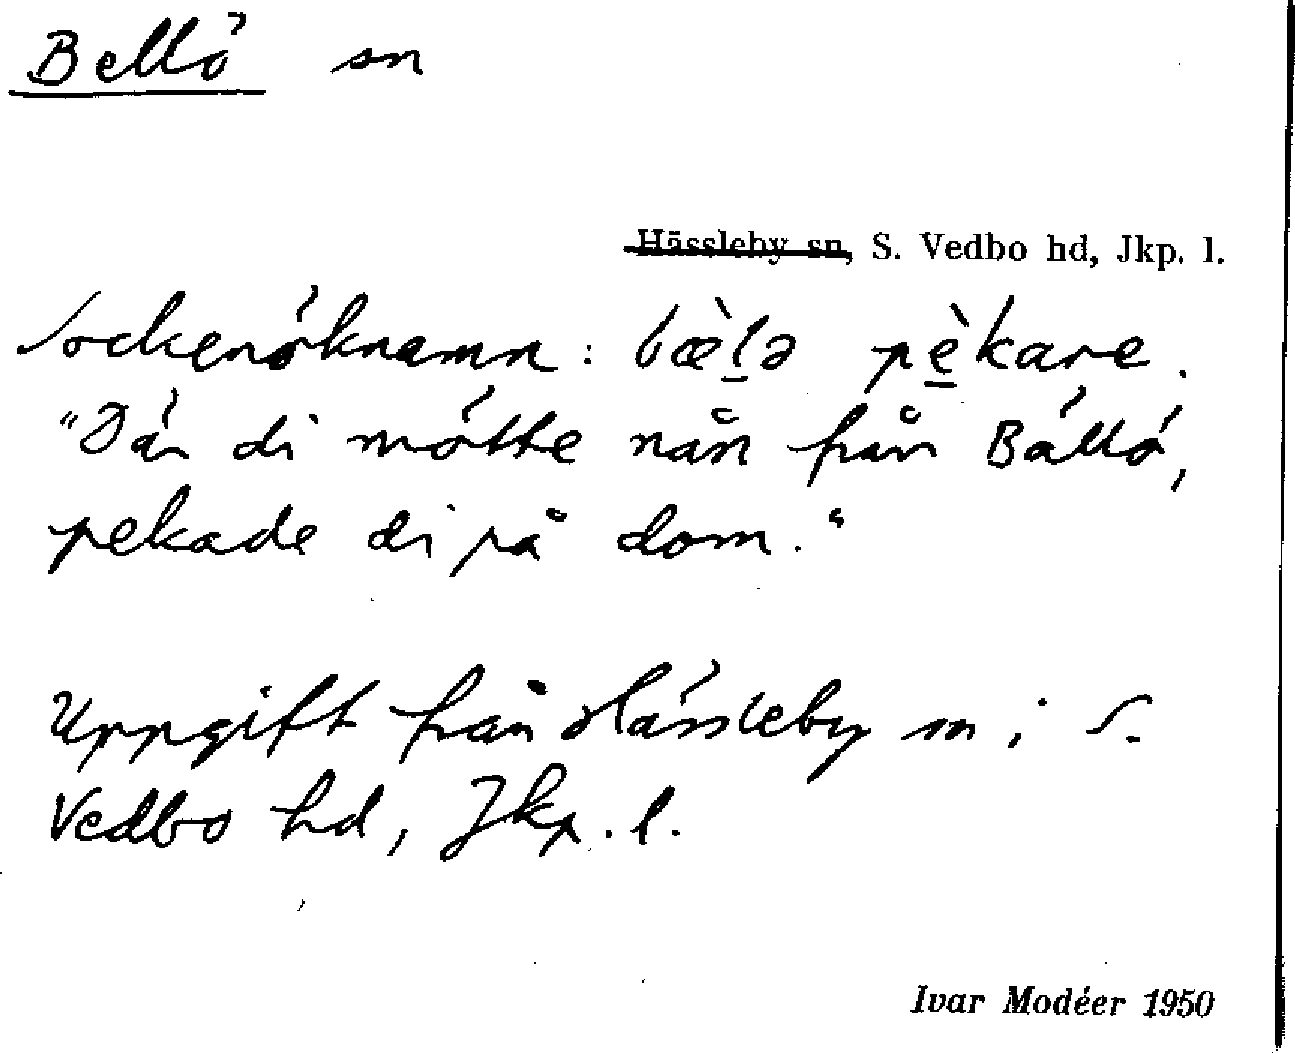 Bellö sn
Hässleby sn, S. Vedbo hd, Jkp. l.
Sockenöknamn: bæ̀l̠ə pè̠kare.
"Där di mötte nån från Bällö,
pekade di på dom."
Uppgift från Hässleby sn i S.
Vedbo hd, Jkp. l.
Ivar Modéer 1950